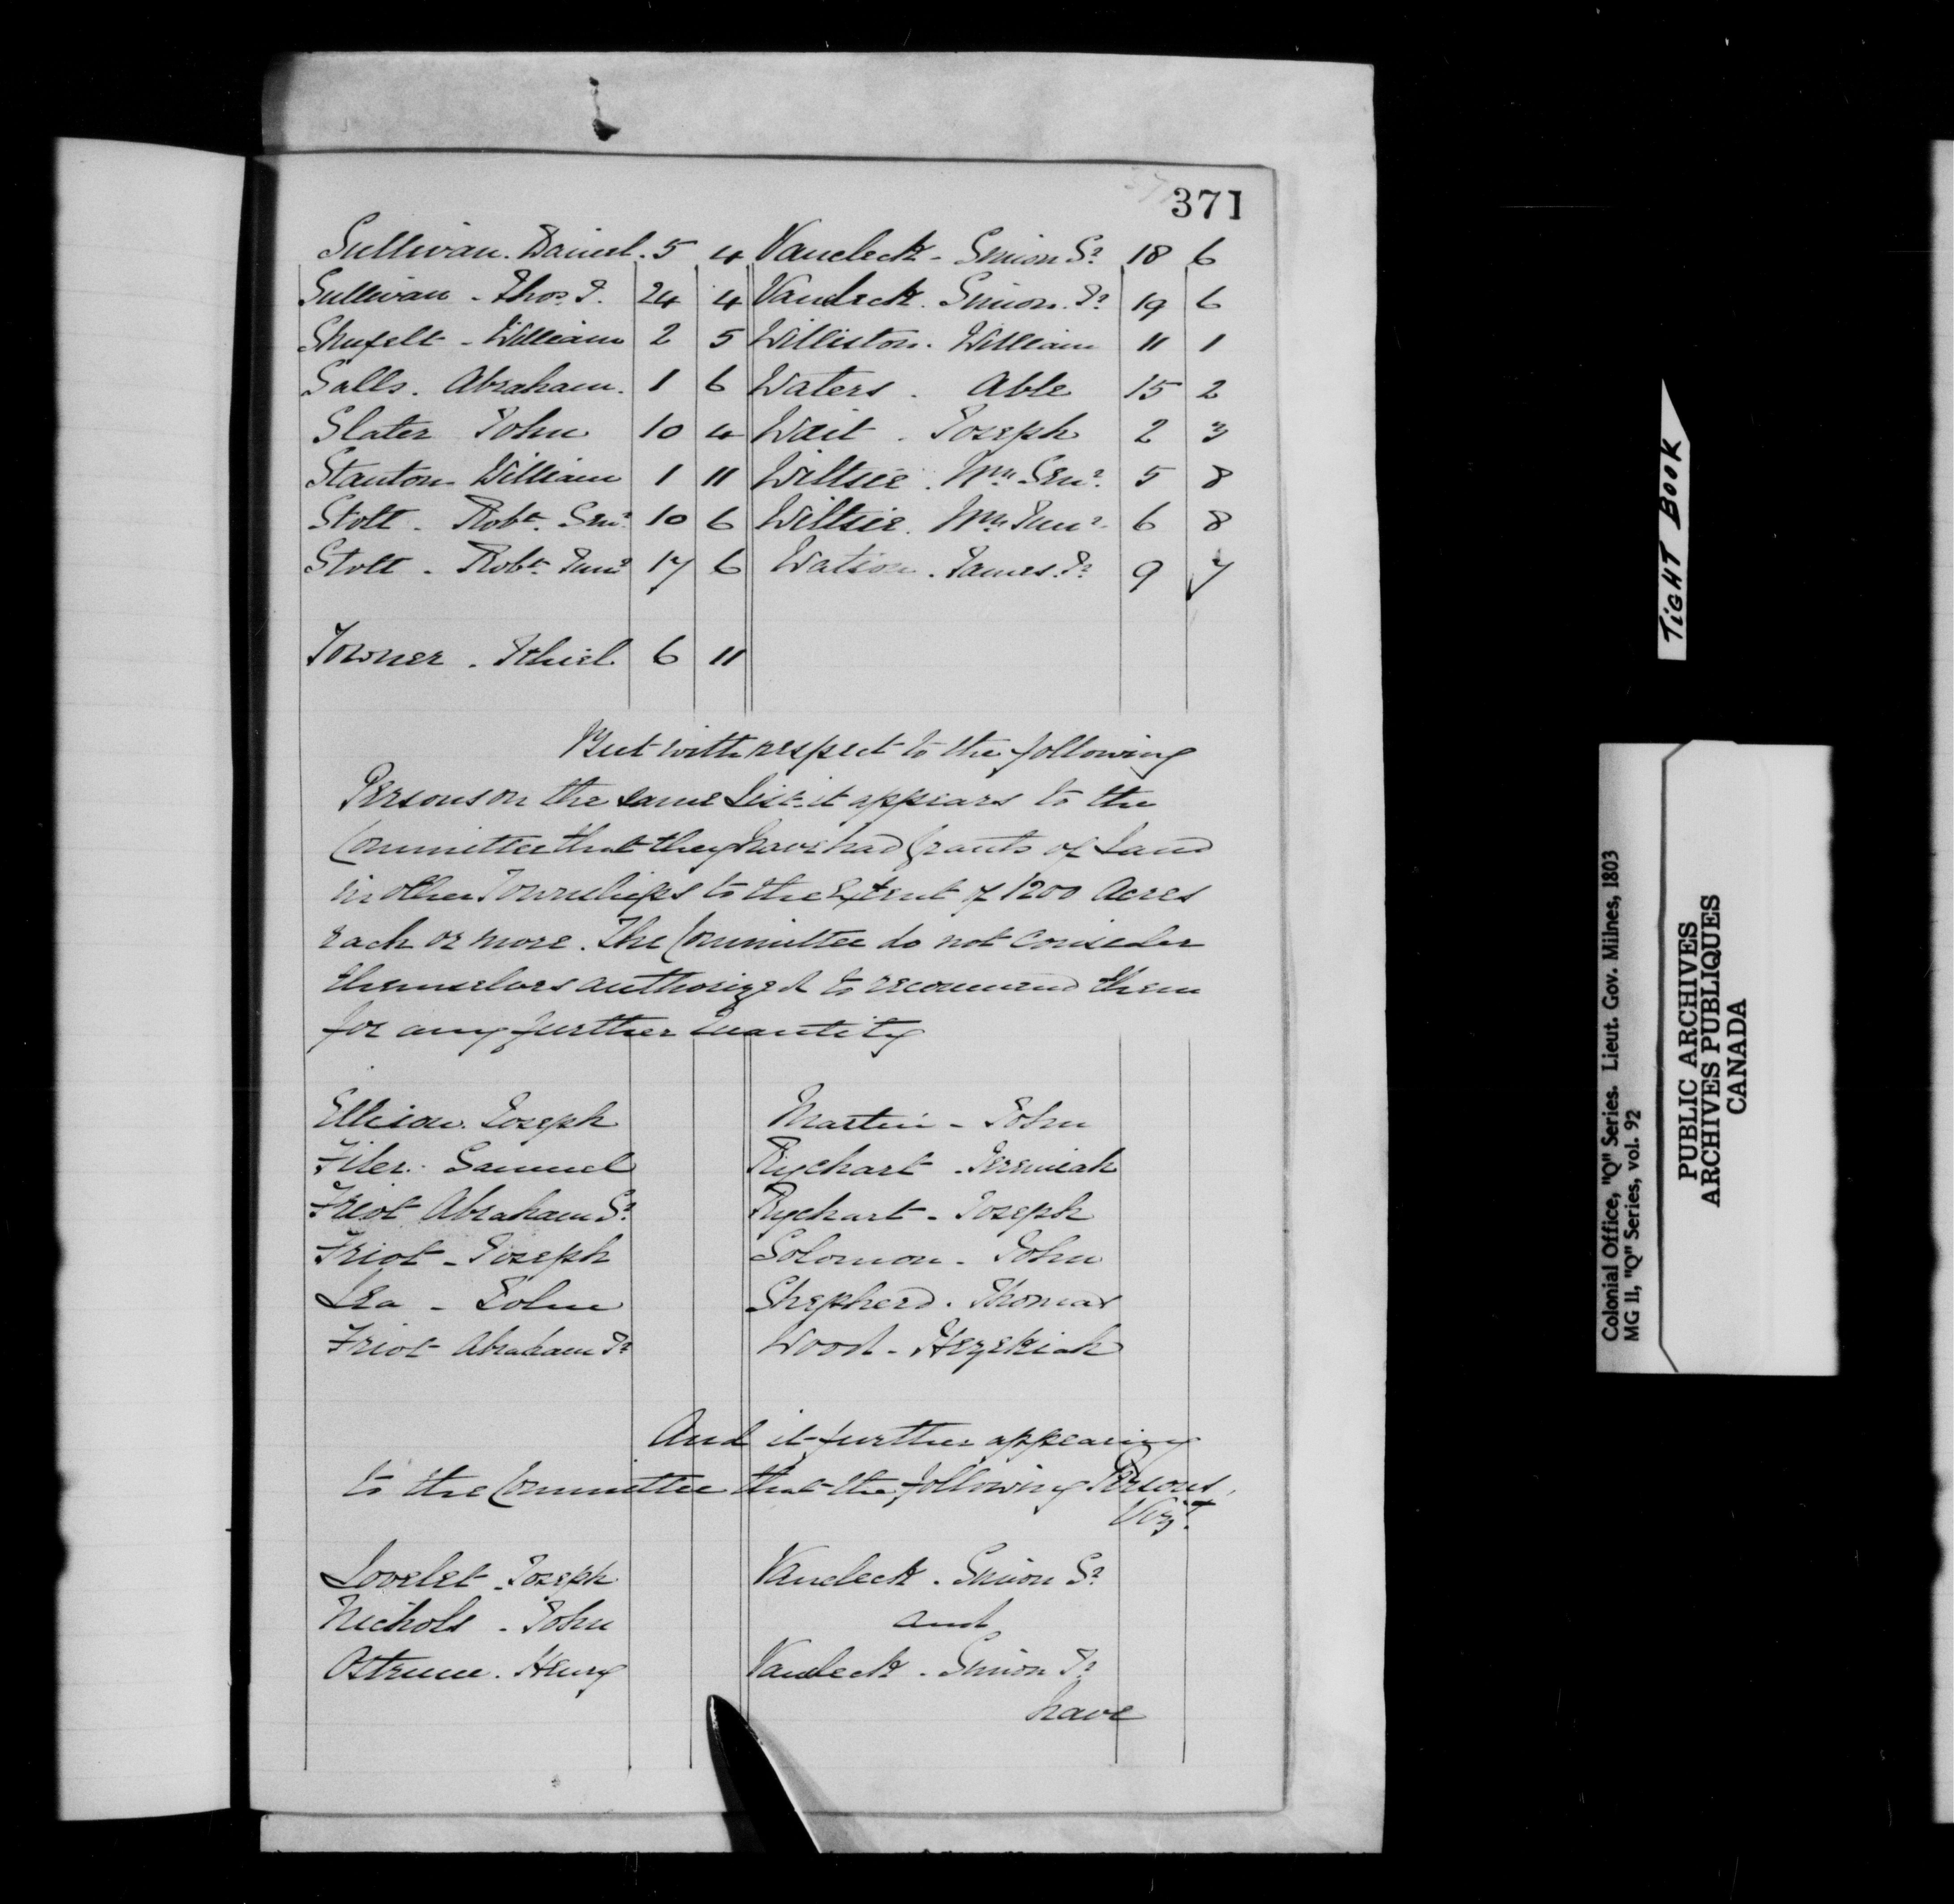 371
Sullivan. Daniel. 5 4 Vancleck - Simon Sr 18 6
Sullivan - Thos. J. 24 4 Vancleck. Simon. Jr 19 6
Shufelt - William 2 5 Williston. William 11 1
Salls. Abraham. 1 6 Waters. Able 15 2
Slater John 10 4 Wait. Joseph 2 3
Stanton William 1 11 Wiltsie. Wm Senr. 5 8
Stott - Robt. Senr 10 6 Wiltsie. Wm Junr. 6 8
Stott - Robt. Junr 17 6 Watson. James. Jr 9 7
Towner. Ithiel 6 11
But with respect to the following
Persons on the same List it appears to the
Committee that they have had Grants of Land
in other Townships to the Extent of 1200 Acres
each or more. The Committee do not consider
themselves authorized to recommend them
for any further Quantity
Ellison Joseph Martin - John
Filer. Samuel Rychart - Jeremiah
Friot Abraham Sr. Rychart - Joseph
Friot - Joseph Solomon - John
Lea - John Shepherd. Thomas
Friot Abraham Jr Wood - Hezekiah
And it further appearing
to the Committee that the following Persons,
Vizt.
Lovelet - Joseph Vancleck. Simon Sr
Nichols - John and
Ostrum. Henry Vancleck. Simon Jr
have
TIGHT BOOK
Colonial Office, "Q" Series. Lieut. Gov. Milnes, 1803
MG 11, "Q" Series, vol. 92
PUBLIC ARCHIVES
ARCHIVES PUBLIQUES
CANADA